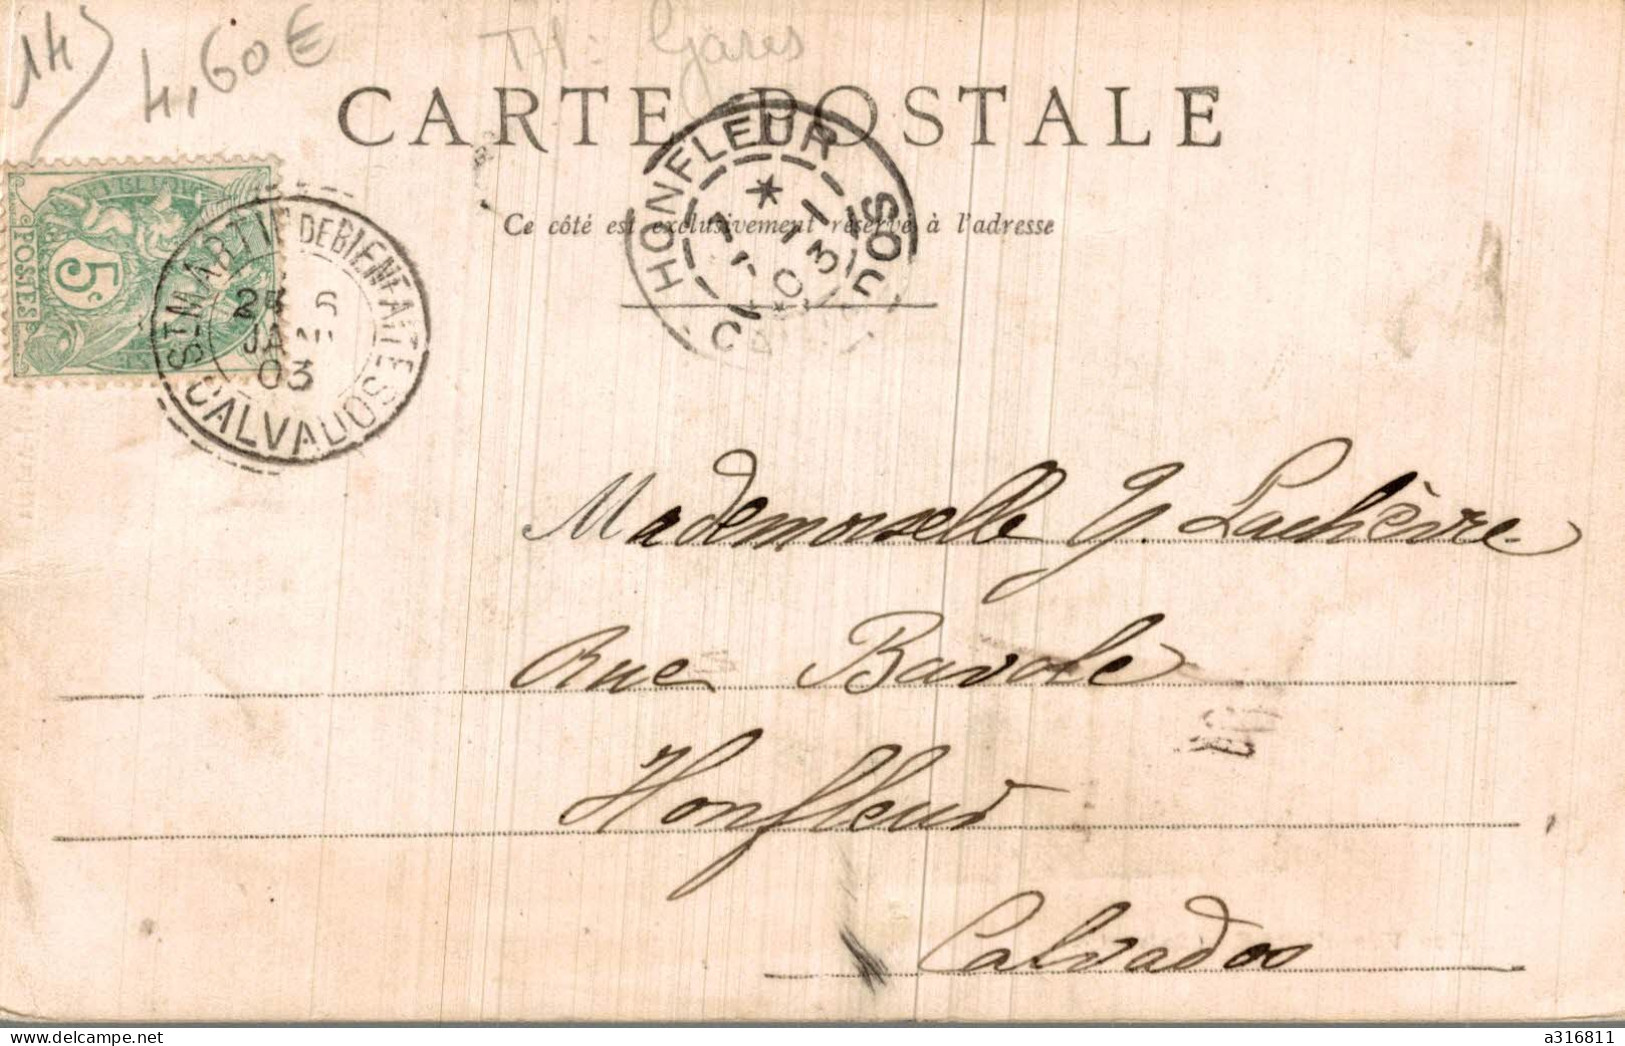 14)
4,60€
TH: Gares
CARTE POSTALE
HONFLEUR
Ce côté est exclusivement réservé à l'adresse
POSTES
5c
ST MARTIN DE BIENFAITE
JANV
03
CALVADOS
Mademoiselle G. Lachèvre
Rue Bavole
Honfleur
Calvados
a316811